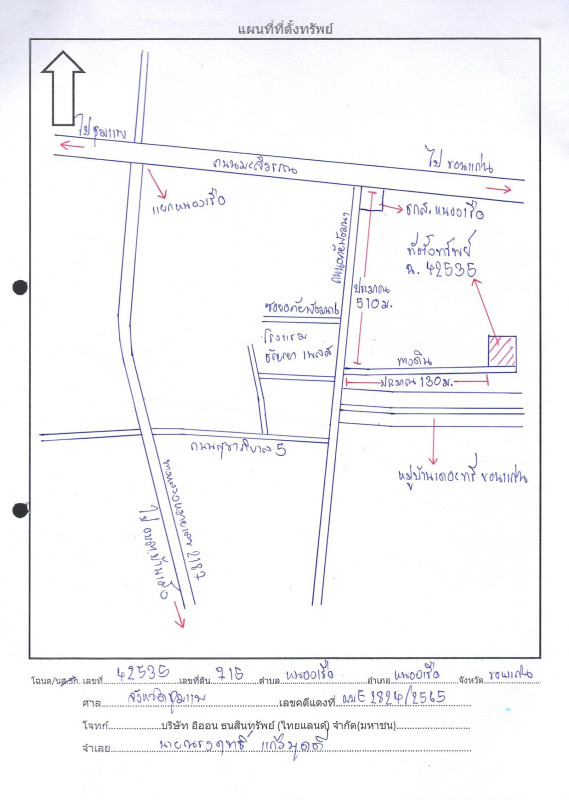 แผนที่ที่ตั้งทรัพย์
ไปชุมแพ
ถนนมะลิวรรณ
ไป ขอนแก่น
แยกหนองเรือ
ธกส.หนองเรือ
ถนนอภัยพัฒนา
ที่ตั้งทรัพย์
ฉ. 42535
ประมาณ
510 ม.
ซอยอภัยพัฒนา
โรงแรม
ธัญญา เพลส
ทางดิน
ประมาณ 130 ม.
ถนนสุขาภิบาล 5
หมู่บ้านเดอะทรี ขอนแก่น
ทางหลวงหมายเลข 2187
ไป อบต.บ้านเม็ง
โฉนด/น.ส.3ก. เลขที่ 42535 เลขที่ดิน 715 ตำบล หนองเรือ อำเภอ หนองเรือ จังหวัด ขอนแก่น
ศาล จังหวัดชุมแพ เลขคดีแดงที่ ผบE2824/2565
โจทก์ บริษัท อิออน ธนสินทรัพย์ (ไทยแลนด์) จำกัด(มหาชน)
จำเลย นายณรงฤทธิ์